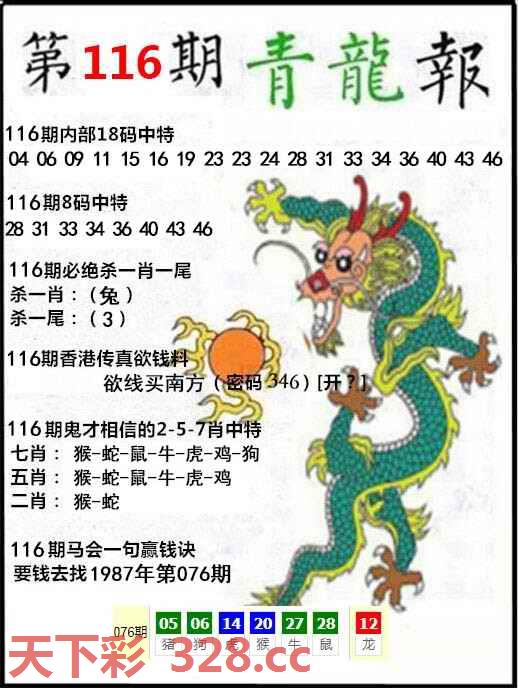 第116期青龍報
116期内部18码中特
04 06 09 11 15 16 19 23 23 24 28 31 33 34 36 40 43 46
116期8码中特
28 31 33 34 36 40 43 46
116期必绝杀一肖一尾
杀一肖：（兔）
杀一尾：（3）
116期香港传真欲钱料
欲线买南方（密码346）[开？]
116期鬼才相信的2-5-7肖中特
七肖：猴-蛇-鼠-牛-虎-鸡-狗
五肖：猴-蛇-鼠-牛-虎-鸡
二肖：猴-蛇
116期马会一句赢钱诀
要钱去找1987年第076期
076期 05 06 14 20 27 28 12
猪 狗 虎 猴 牛 鼠 龙
天下彩 328.cc